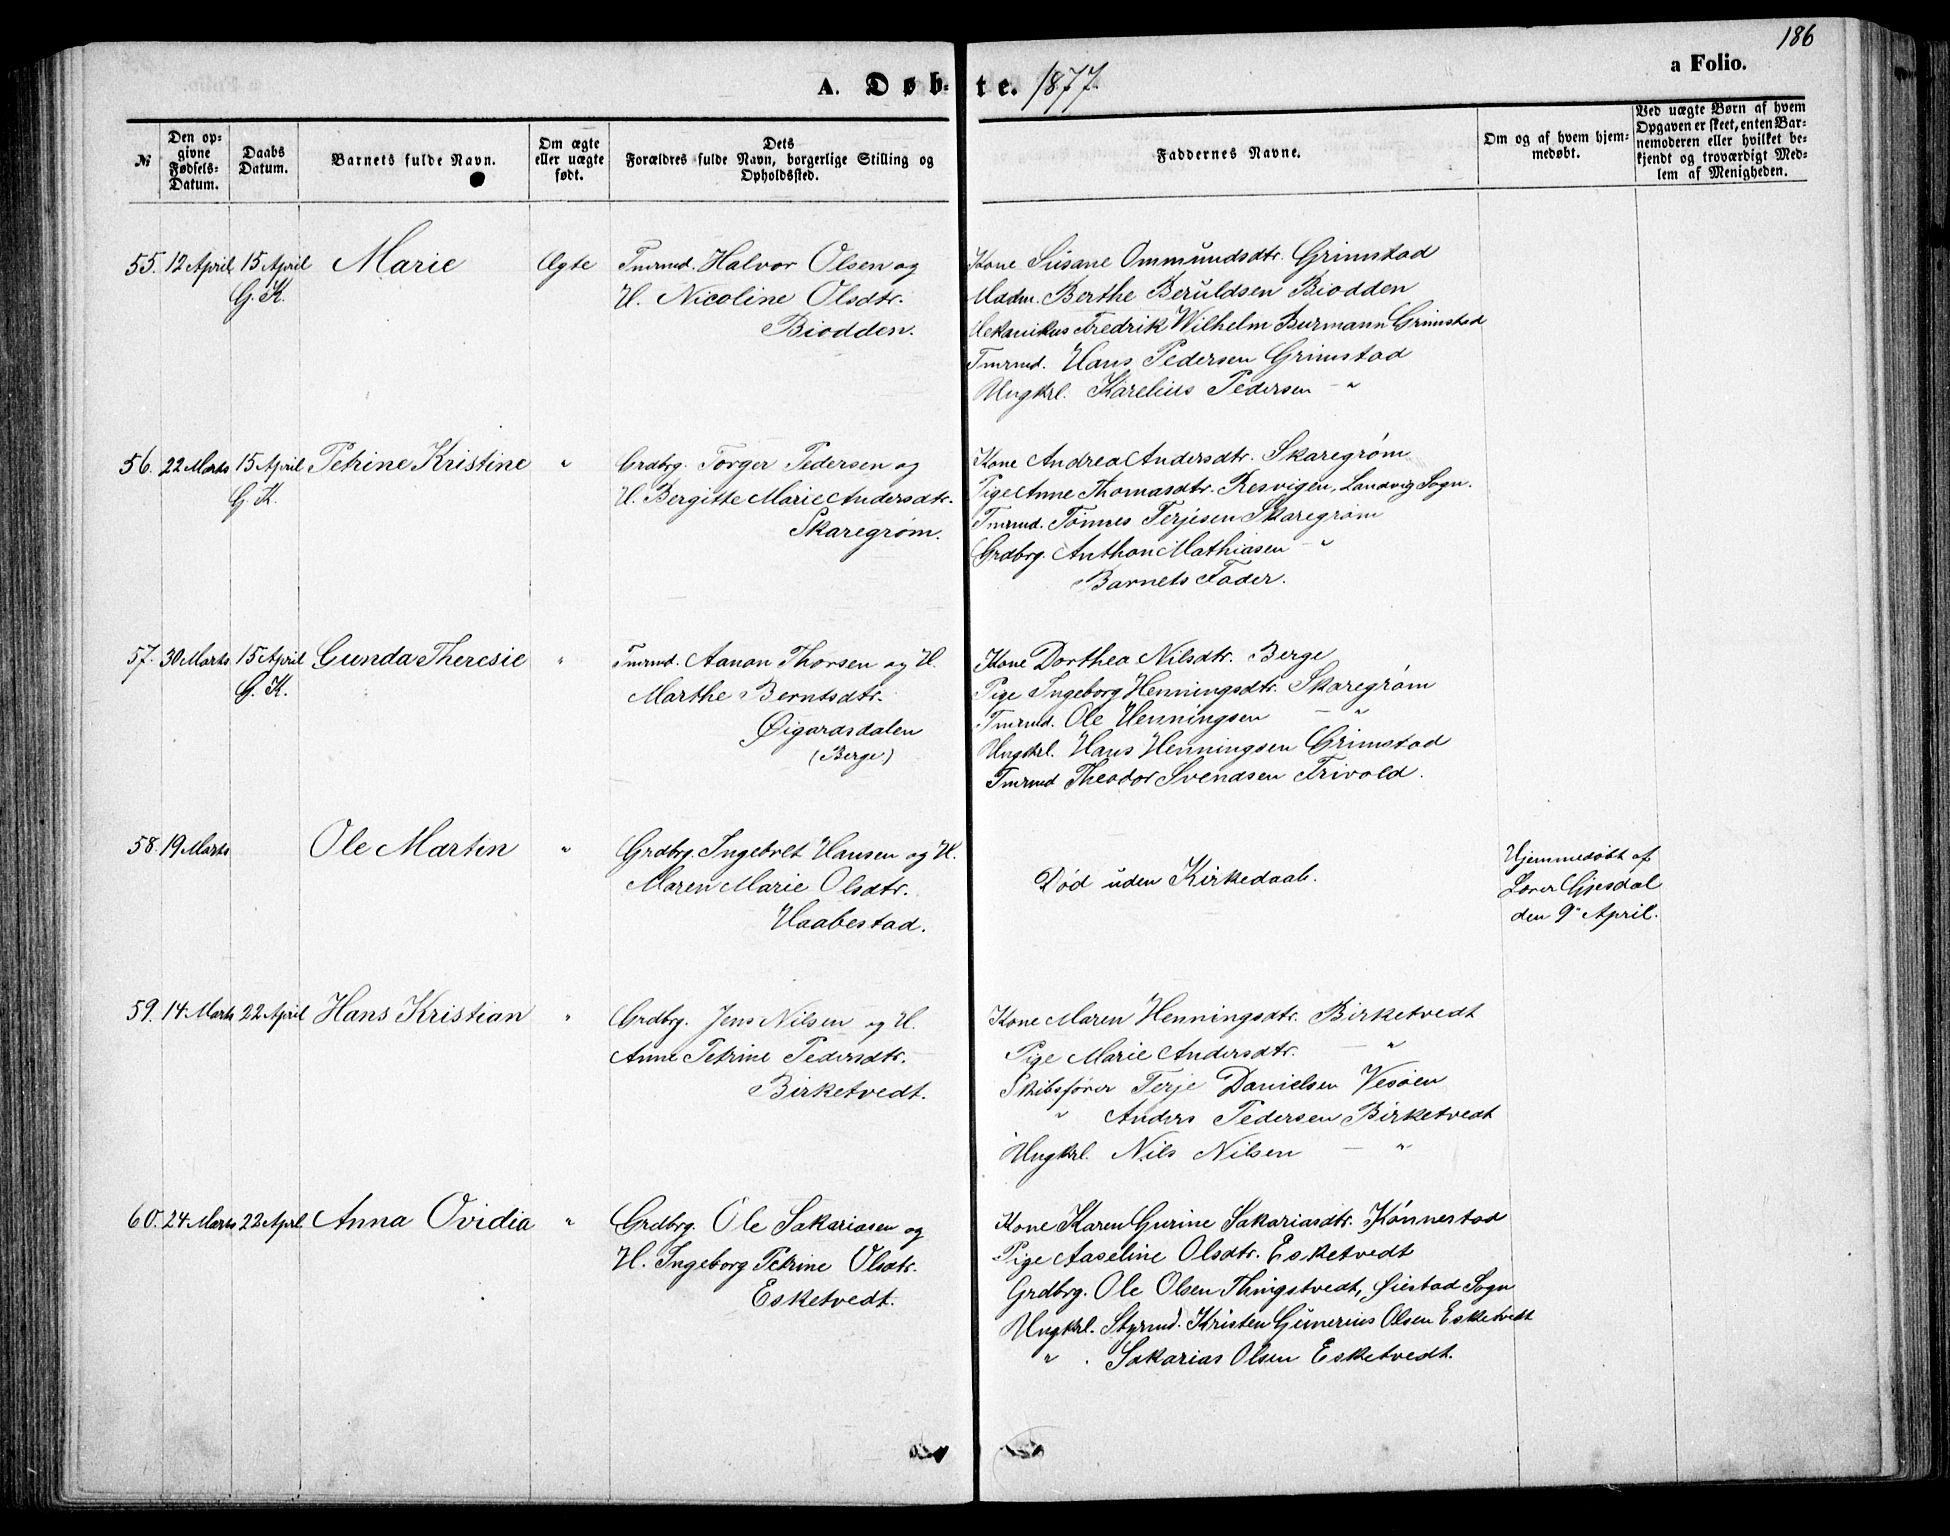 186
a Folio.
A. Døb-te. 1877.
№
Den op-
givne
Fødsels-
Datum.
Daabs
Datum.
Barnets fulde Navn.
Om ægte
eller uægte
født.
Dets
Forældres fulde Navn, borgerlige Stilling og
Opholdssted.
Faddernes Navne.
Om og af hvem hjem-
medøbt.
Ved uægte Børn af hvem
Opgaven er skeet, enten Bar-
nemoderen eller hvilket be-
kjendt og troværdigt Med-
lem af Menigheden.
55. 12 April 15 April Marie Ægte Tmrmd. Halvor Olsen og
G. K. H. Nicoline Olsdtr.
Biodden.
Kone Susane Ommundsdtr. Grimstad
Madm. Berthe Beruldsen Biodden
Mekanikus Fredrik Wilhelm Burmann Grimstad
Tmrmd. Hans Pedersen Grimstad
Ungkrl. Karelius Pedersen — "
56. 22 Marts 15 April Petrine Kristine " Grdbrg. Torger Pedersen og
G. K. H. Bergitte Marie Andersdtr.
Skaregrøm.
Kone Andrea Andersdtr. Skaregrøm
Pige Anne Thomasdtr. Resvigen, Landvig Sogn.
Tmrmd. Tønnes Terjesen Skaregrøm
Grdbrg. Anthon Mathiasen — "
Barnets Fader.
57. 30 Marts 15 April Gunda Theresie " Tmrmd. Aanon Thorsen og H.
G. K. Marthe Berntsdtr.
Øigardsdalen
(Berge)
Kone Dorthea Nilsdtr. Berge
Pige Ingeborg Henningsdtr. Skaregrøm
Tmrmd. Ole Henningsen — "
Ungkrl. Hans Henningsen Grimstad
Tmrmd Theodor Svendsen Frivold.
58. 19 Marts Ole Martin " Grdbrg. Ingebret Hansen og H.
Maren Marie Olsdtr.
Haabestad.
Død uden Kirkedaab.
Hjemmedøbt af
Lærer Gjesdal
den 9" April.
59. 14 Marts 22 April Hans Kristian " Grdbrg. Jens Nilsen og H.
Anne Petrine Pedersdtr.
Birketvedt.
Kone Maren Henningsdtr. Birketvedt
Pige Marie Andersdtr. — "
Skibsfører Terje Danielsen Vesøen
" Anders Pedersen Birketvedt
Ungkrl. Nils Nilsen — "
60. 24 Marts 22 Aprl. Anna Ovidia " Grdbrg. Ole Sakariasen og
H. Ingeborg Petrine Olsdtr.
Esketvedt.
Kone Karen Gurine Sakariasdtr. Kónnestad
Pige Aaseline Olsdtr. Esketvedt
Grdbrg. Ole Olsen Thingstvedt, Øiestad Sogn
Ungkrl. Styrmd. Kristen Gunerius Olsen Esketvedt
" . Sakarias Olsen Esketvedt.